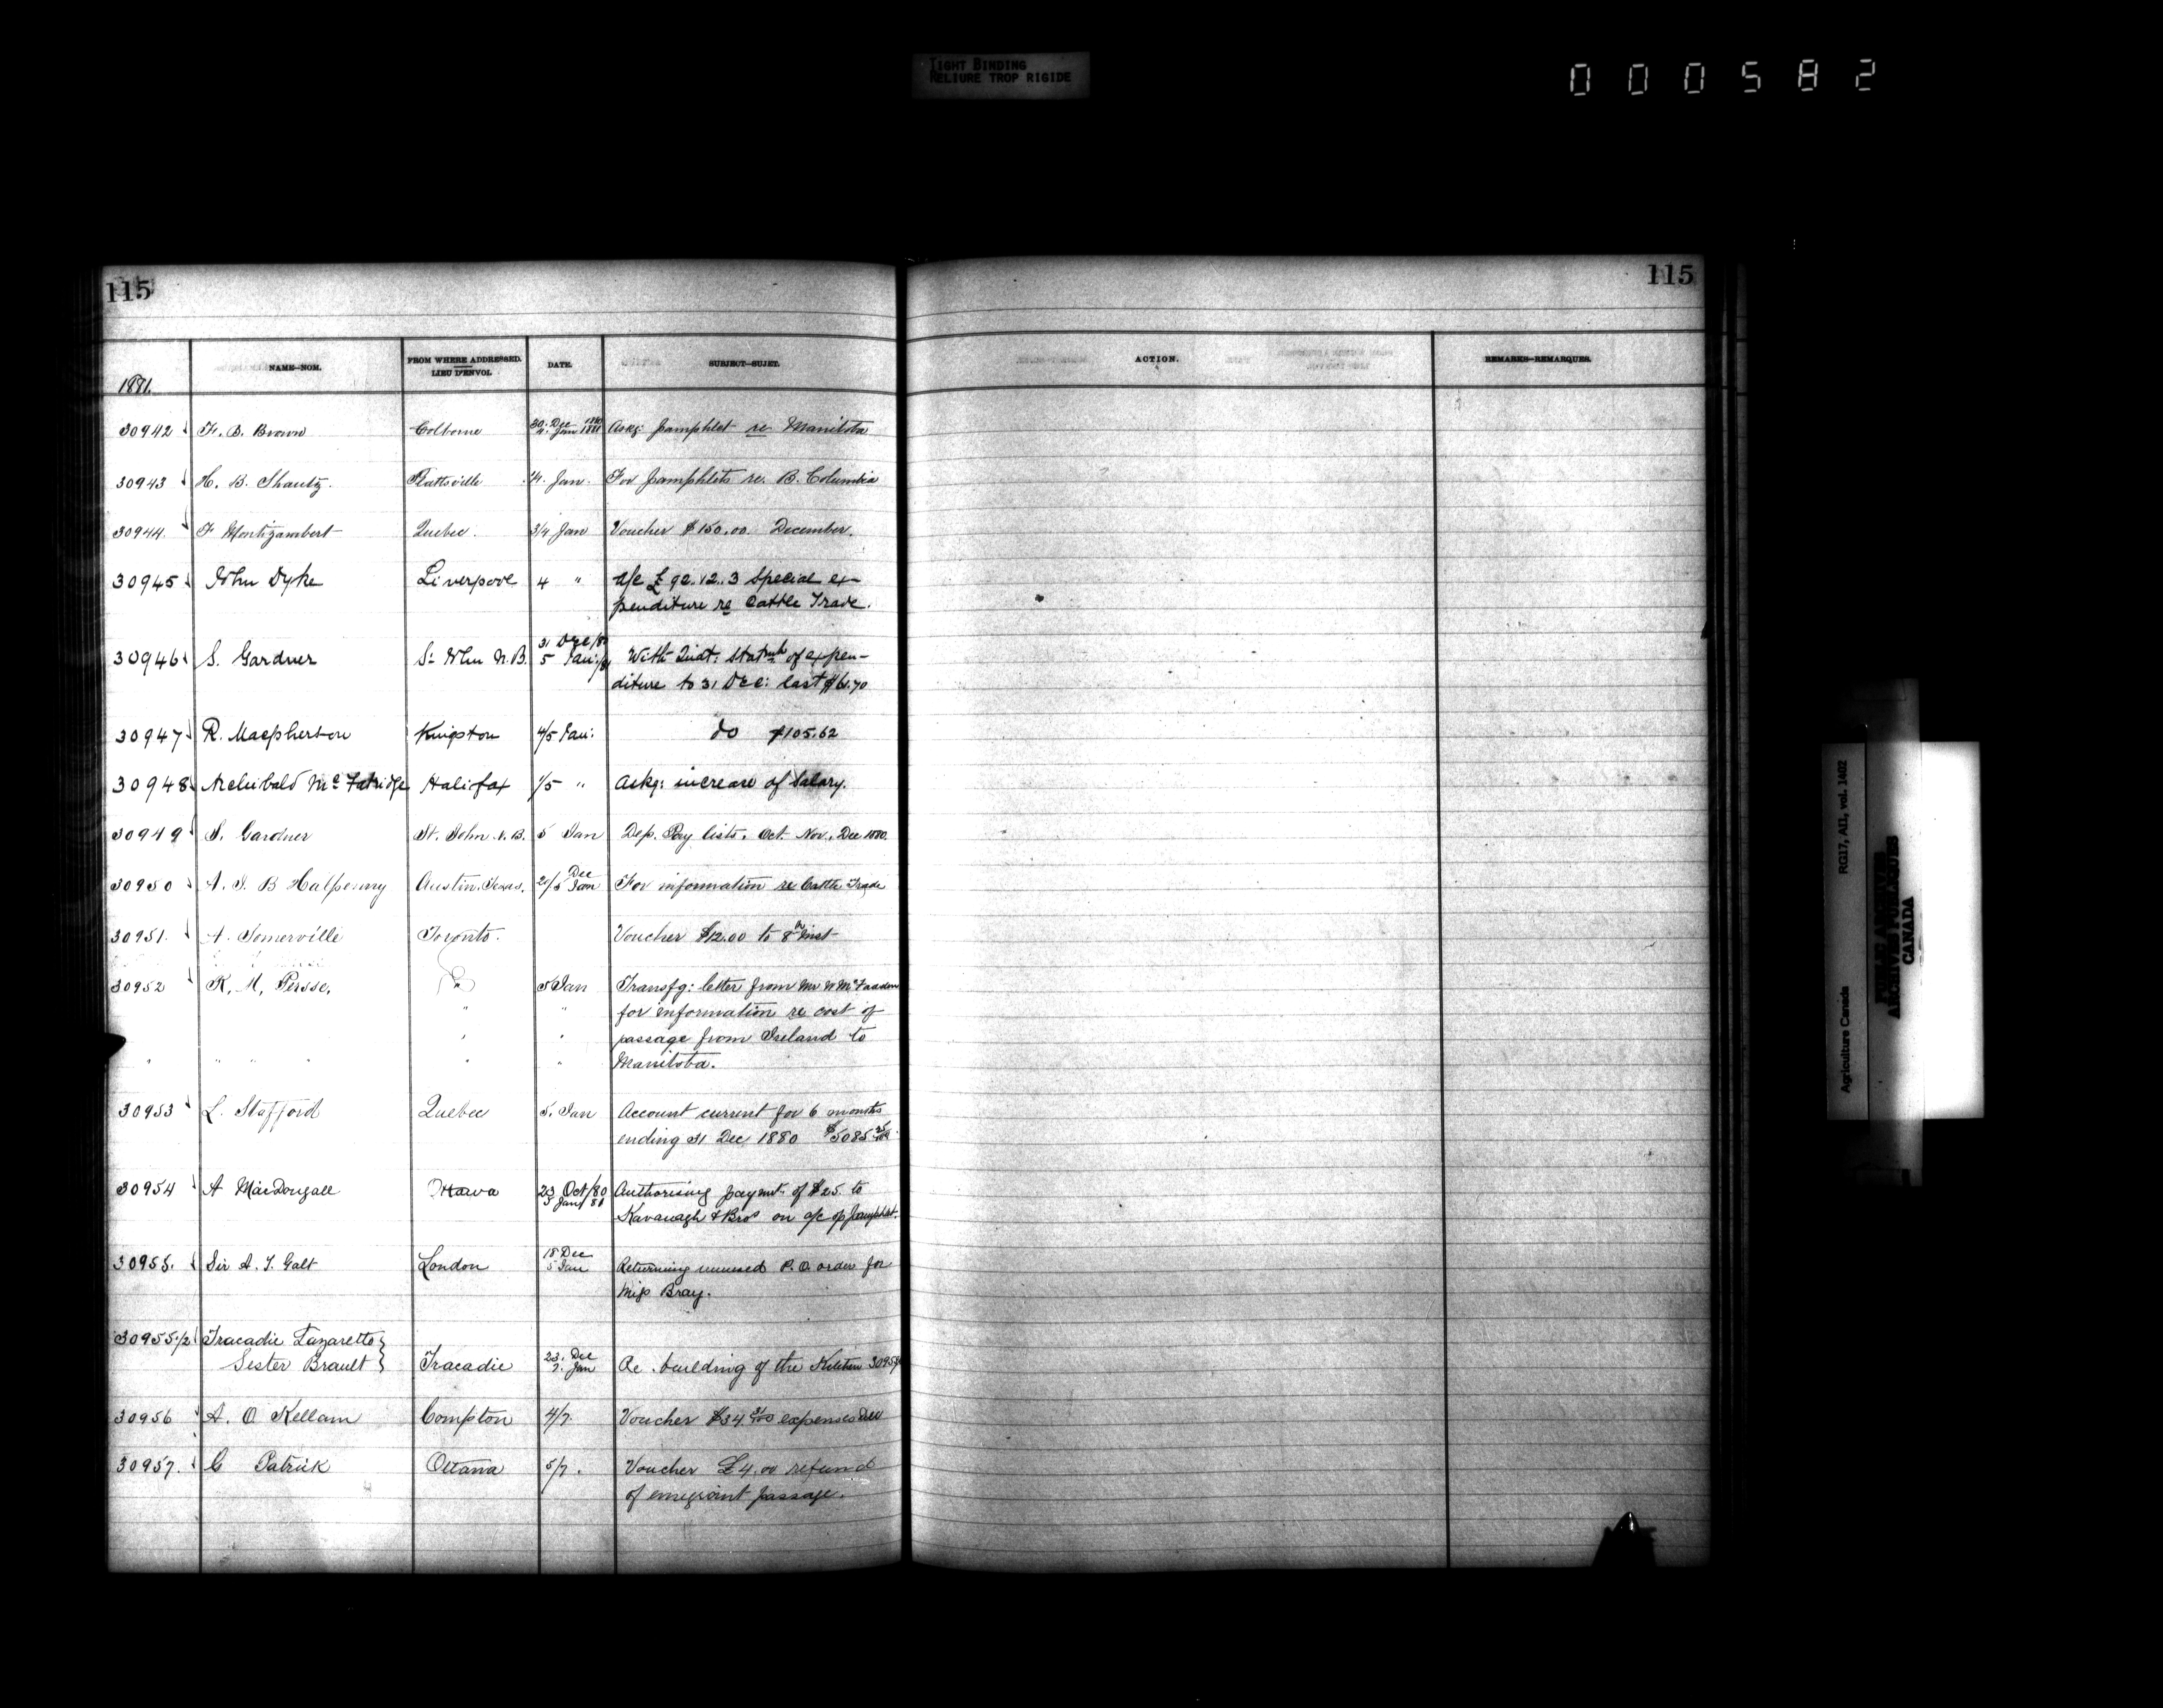 TIGHT BINDING
RELIURE TROP RIGIDE
000582
115
115
NAME—NOM.
FROM WHERE ADDRESSED.
LIEU D'ENVOI.
DATE.
SUBJECT—SUJET.
ACTION.
REMARKS—REMARQUES.
1881.
30942 F. B. Brown Colborne 30. Dec 1880 4. Jan 1881 Askg: pamphlet re Manitoba
30943 H. B. Shantz. Plattsville 4. Jan. For pamphlets re. B. Columbia
30944 F Montizambert Quebec. 3/4 Jan Voucher $150.00 December.
30945 John Dyke Liverpool 4 " a/c £92.12.3 Special ex-
penditure re Cattle Trade.
30946 S. Gardner St John N.B. 31 Dec/80 5 Jan:/81 With of expen-
diture to 31 Dec: last $61.70
30947 R. Macpherson Kingston 4/5 Jan: do $105.62
30948 Archibald Mc Halifax 1/5 " Askg: increase of Salary.
30949 S. Gardner St. John N.B. 5 Jan Dep. Pay lists. Oct. Nov. Dec 1880.
30950 A. J. B Halpenny Austin. Texas. Dec Jan For information re Cattle Trade
30951. A. Somerville Toronto. Voucher $12.00 to 8th inst
30952 R. M. Persse, 5 Jan Transfg: letter from Mr W McFadden
for information re cost of
passage from Ireland to
Manitoba.
30953 L. Stafford Quebec 5. Jan Account current for 6 months
ending 31 Dec 1880 $5085
30954 A MacDougall Ottawa 23 Oct/80 5 Jan/81 Authorising paymt. of $25. to
Kavanagh & Bros on a/c of pamphlet.
30955. Sir A. T. Galt London 18 Dec 5 Jan Returning unused P.O. order for
Miss Bray.
30955 1/2 Tracadie Lazaretto
Sister Brault Tracadie 23. Dec 7. Jan Re. building of the Kitchen
30956 A. O Kellam Compton 4/7. Voucher $34 expenses Dec
30957. G Patrick Ottawa 5/7. Voucher £4.00 refund
of emigrant passage.
Agriculture Canada RG17, AII, vol. 1402
PUBLIC ARCHIVES
ARCHIVES PUBLIQUES
CANADA